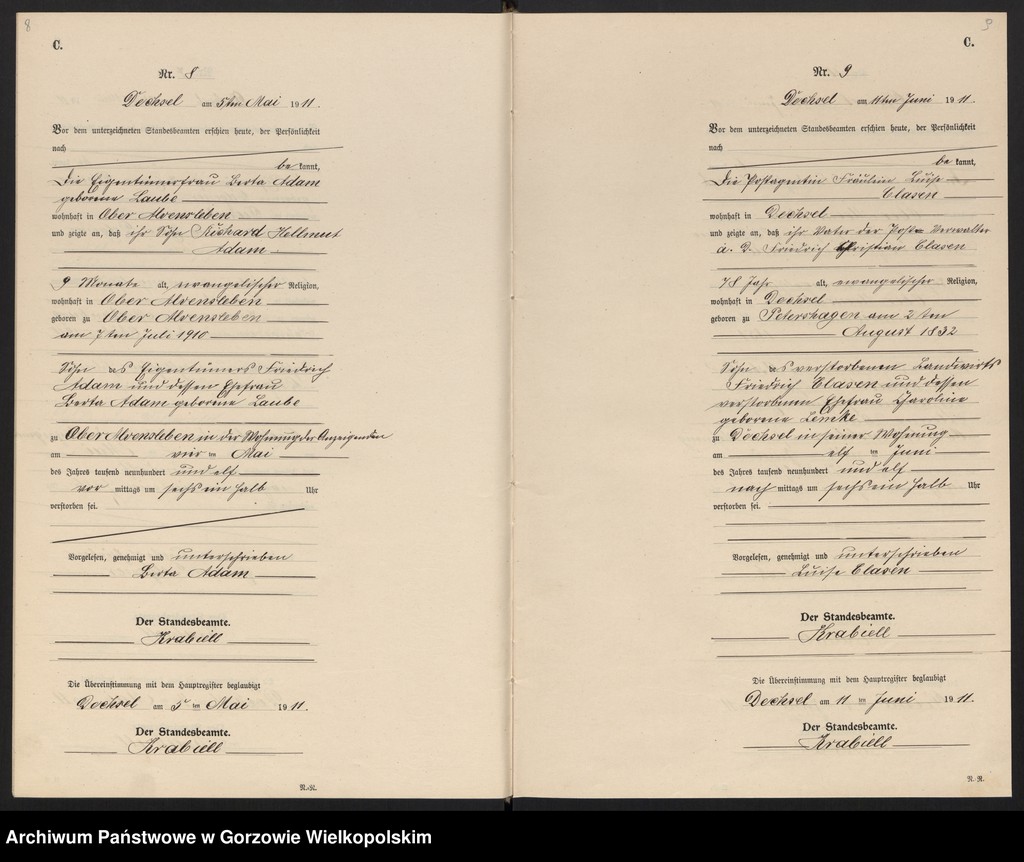 8
C.
Nr. 8
Dechsel am 5ten Mai 1911.
Vor dem unterzeichneten Standesbeamten erschien heute, der Persönlichkeit
nach
bekannt,
die Eigentümerfrau Berta Adam
geborene Laube
wohnhaft in Ober Alvensleben
und zeigte an, daß ihr Sohn Richard Hellmut
Adam
9 Monate alt, evangelischer Religion,
wohnhaft in Ober Alvensleben
geboren zu Ober Alvensleben
am 7ten Juli 1910
Sohn des Eigentümers Friedrich
Adam und dessen Ehefrau
Berta Adam geborene Laube
zu Ober Alvensleben in der Wohnung der Anzeigenden
am vier ten Mai
des Jahres tausend neunhundert und elf
vor mittags um sechs ein halb Uhr
verstorben sei.
Vorgelesen, genehmigt und unterschrieben
Berta Adam
Der Standesbeamte.
Krabiell
Die Übereinstimmung mit dem Hauptregister beglaubigt
Dechsel am 5 ten Mai 1911.
Der Standesbeamte.
Krabiell
N.R.
9
C.
Nr. 9
Dechsel am 11ten Juni 1911.
Vor dem unterzeichneten Standesbeamten erschien heute, der Persönlichkeit
nach
bekannt,
die Postagentin Fräulein Luise
Clasen
wohnhaft in Dechsel
und zeigte an, daß ihr Vater der Post= Verwalter
a. D. Friedrich Christian Clasen
78 Jahr alt, evangelischer Religion,
wohnhaft in Dechsel
geboren zu Petershagen am 2ten
August 1832
Sohn des verstorbenen Landwirts
Friedrich Clasen und dessen
verstorbenen Ehefrau Karoline
geborene Lemke
zu Dechsel in seiner Wohnung
am elf ten Juni
des Jahres tausend neunhundert und elf
nach mittags um sechs ein halb Uhr
verstorben sei.
Vorgelesen, genehmigt und unterschrieben
Luise Clasen
Der Standesbeamte.
Krabiell
Die Übereinstimmung mit dem Hauptregister beglaubigt
Dechsel am 11 ten Juni 1911.
Der Standesbeamte.
Krabiell
N. R.
Archiwum Państwowe w Gorzowie Wielkopolskim